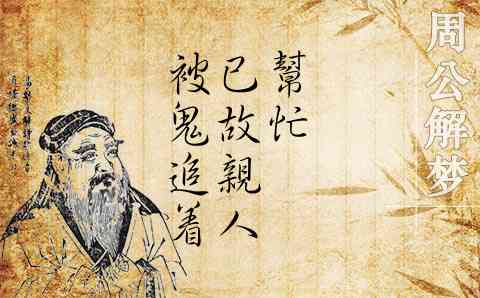 周公解梦
幫忙
已故親人
被鬼追着